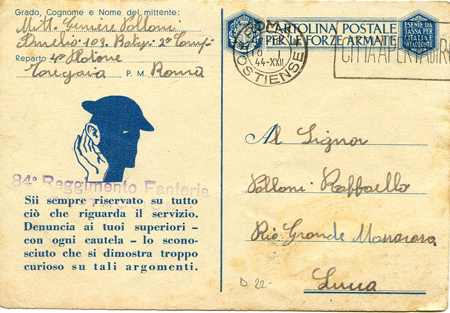 Grado, Cognome e Nome del mittente:
Mitt. Geniere Polloni
109. Batg. 2ª Comp.
Reparto 4º Plotone
P. M. Roma
84° Reggimento Fanteria
Sii sempre riservato su tutto
ciò che riguarda il servizio.
Denuncia ai tuoi superiori -
con ogni cautela - lo scono-
sciuto che si dimostra troppo
curioso su tali argomenti.
CARTOLINA POSTALE
PER LE FORZE ARMATE
ESENTE DA
TASSA PER
L'ITALIA E
ROMA
OSTIENSE
44-XXII
CITTÀ APERTA
Al Signor
Polloni Raffaello
Rio Grande
Lucca
D 22-